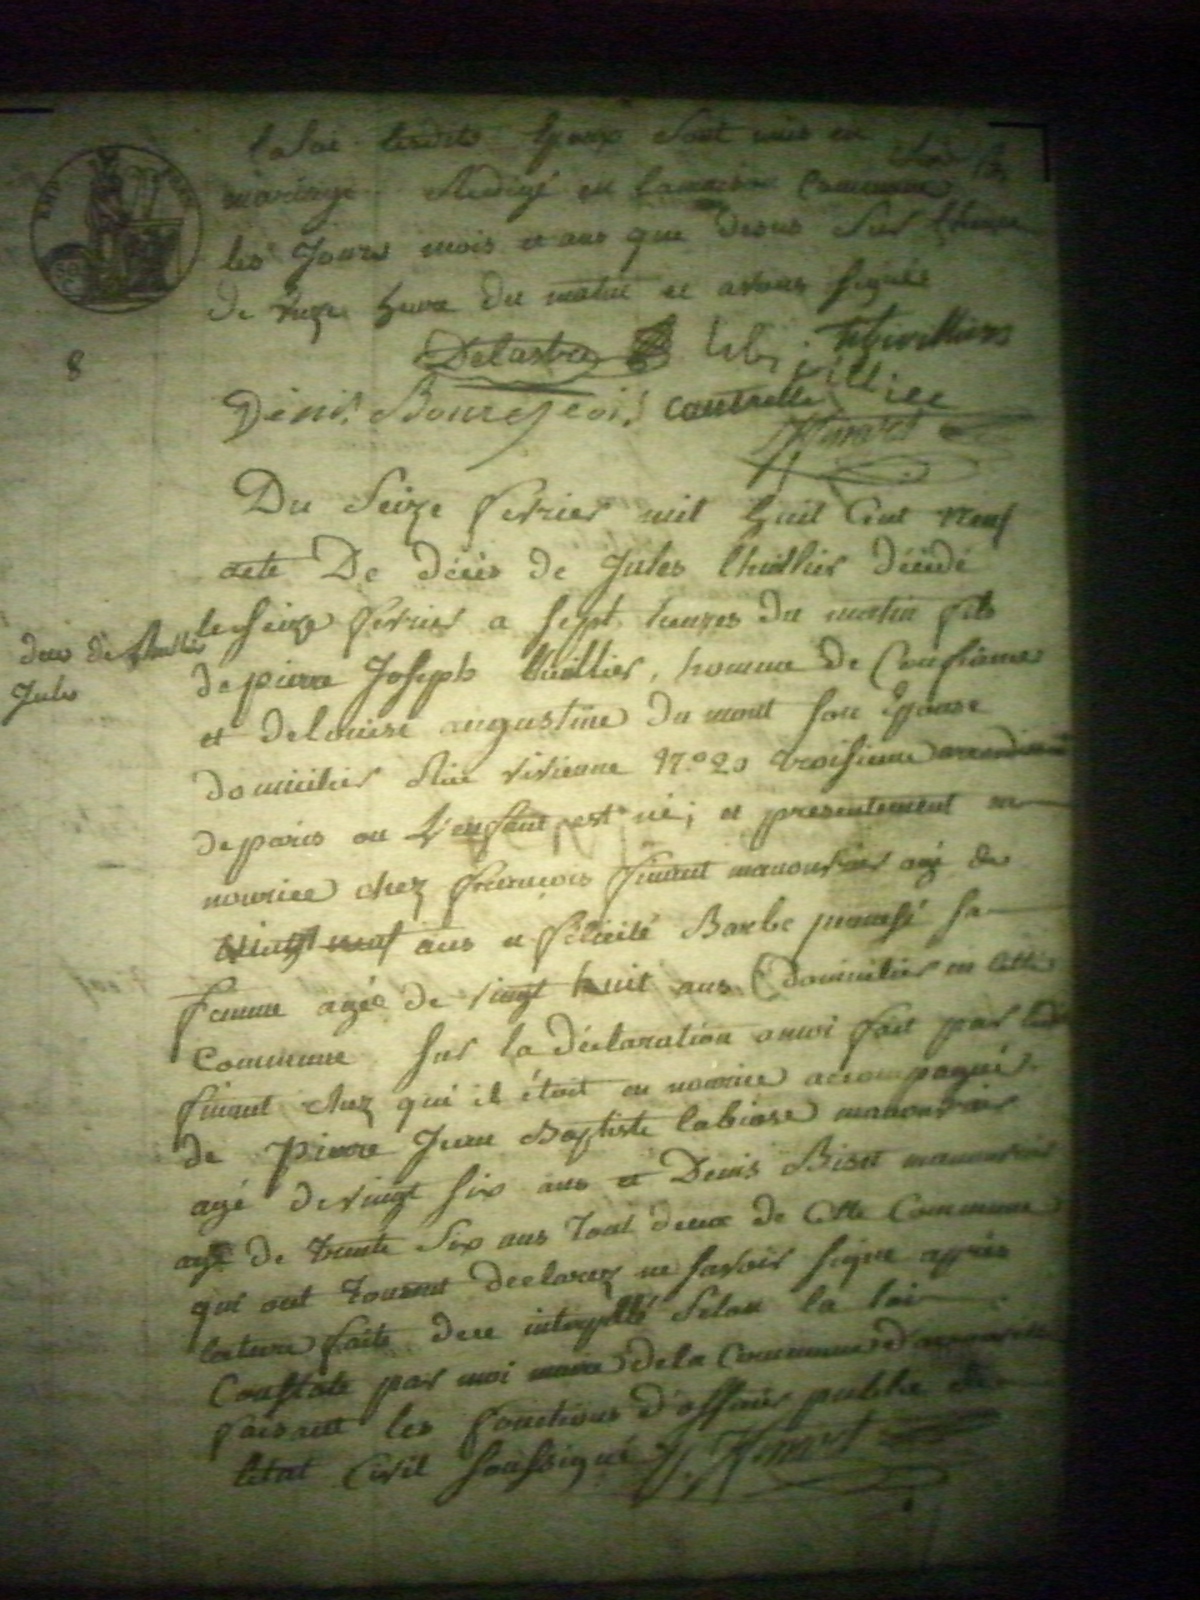 la loi lesdits Epoux sont unis en
mariage. Redigé en la maison Commune
les Jours mois et ans que desus Sur lheure
de onze heure du matin et avons signés
Delastre
Denis Bourgeois Cautrelle
8
Du Seize fevrier mil huit Cent neuf
acte De décès de Jules lhuillier décédé
le Seize fevrier a sept heures du matin fils
deces de lhuillier
Jules
de pierre Joseph lhuillier, homme de Confiance
et de louise augustine du mont son Epouse
domiciliés Rue vivienne N.o 20 troisieme arrondissement
de paris ou L'enfant est né; et presentement en
nourice chez francois finant manouvrier agé de
vingt neuf ans et felicité Barbe sa
femme agée de vingt huit ans domiciliés en cette
Commune Sur la déclaration a moi fait par ledit
finant chez qui il étoit en nourice accompagné
de Pierre Jean Baptiste labiase manouvrier
agé de vingt six ans et Denis Biset manouvrier
agé de trente Six ans Tout deux de Cette Commune
qui ont declarez ne savoir signe apprès
lecture faite de ce interpellé Selon la loi
Constaté par moi maire de la Commune
faisant les fonctions d'officier public de
létat Civil soussigné